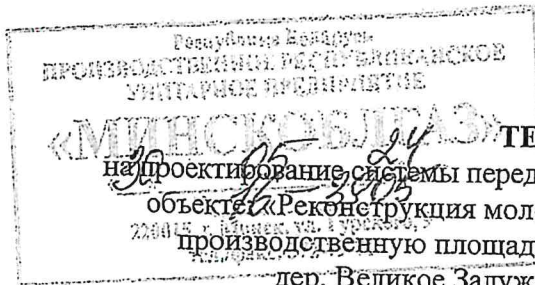 Рэспубліка Беларусь
ПРОИЗВОДСТВЕННОЕ РЕСПУБЛИКАНСКОЕ
УНИТАРНОЕ ПРЕДПРИЯТИЕ
«МИНСКОБЛГАЗ»
ТЕ
на проектирование системы перед
объекте: «Реконструкция мол
производственную площад
дер. Великое Залуж